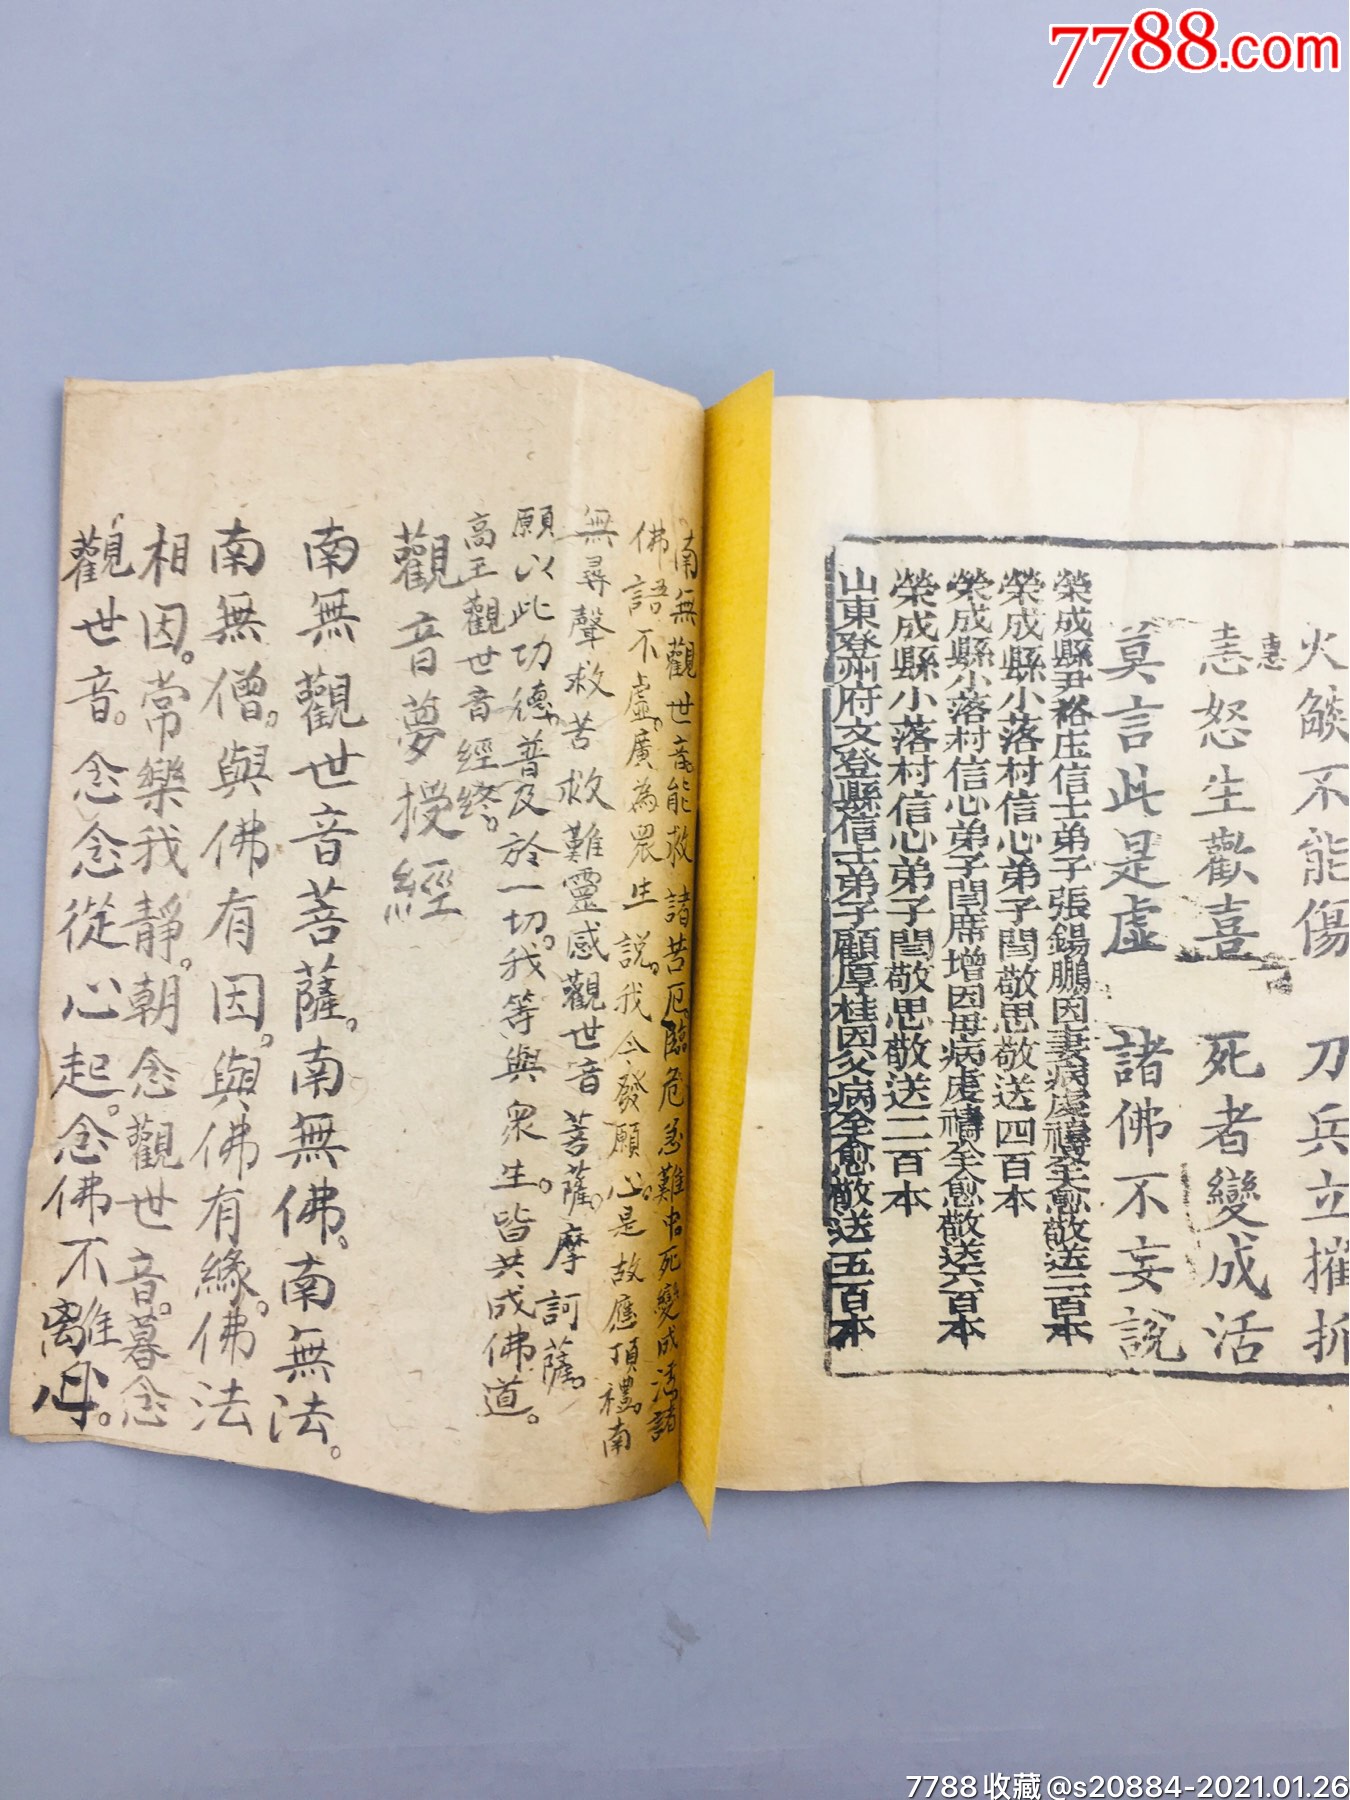 7788.com
火燄不能傷 刀兵立摧折
恚怒生歡喜 死者變成活
恚
莫言此是虛 諸佛不妄說
榮成縣尹格庄信士弟子張錫鵬因妻病虔禱全愈敬送二百本
榮成縣小落村信心弟子閆敬思敬送四百本
榮成縣小落村信心弟子閆席增因母病虔禱全愈敬送六百本
榮成縣小落村信心弟子閆敬思敬送二百本
山東登州府文登縣信士弟子顧厚桂因父病全愈敬送五百本
南無觀世音能救諸苦厄臨危急難中死變成活諸
佛語不虛。廣為眾生說。我今發願心。是故應頂禮。南
無尋聲救苦救難靈感觀世音菩薩。摩訶薩。
願以此功德。普及於一切。我等與眾生。皆共成佛道。
高王觀世音經終。
觀音夢授經
南無觀世音菩薩。南無佛。南無法。
南無僧。與佛有因。與佛有緣。佛法
相因。常樂我靜。朝念觀世音。暮念
觀世音。念念從心起。念佛不離心。
7788收藏@s20884-2021.01.26